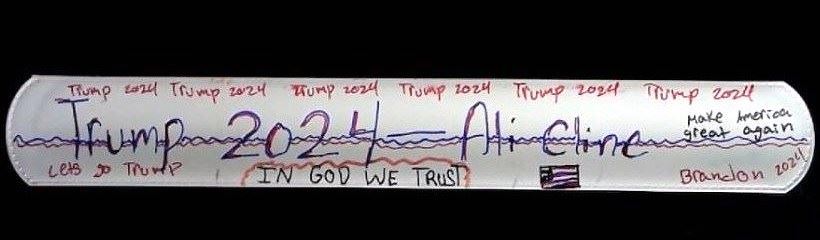 Trump 2024 Trump 2024 Trump 2024 Trump 2024 Trump 2024 Trump 2024
Trump 2024 — Ali Cline
Make America
great again
Lets go Trump
IN GOD WE TRUST
Brandon 2024